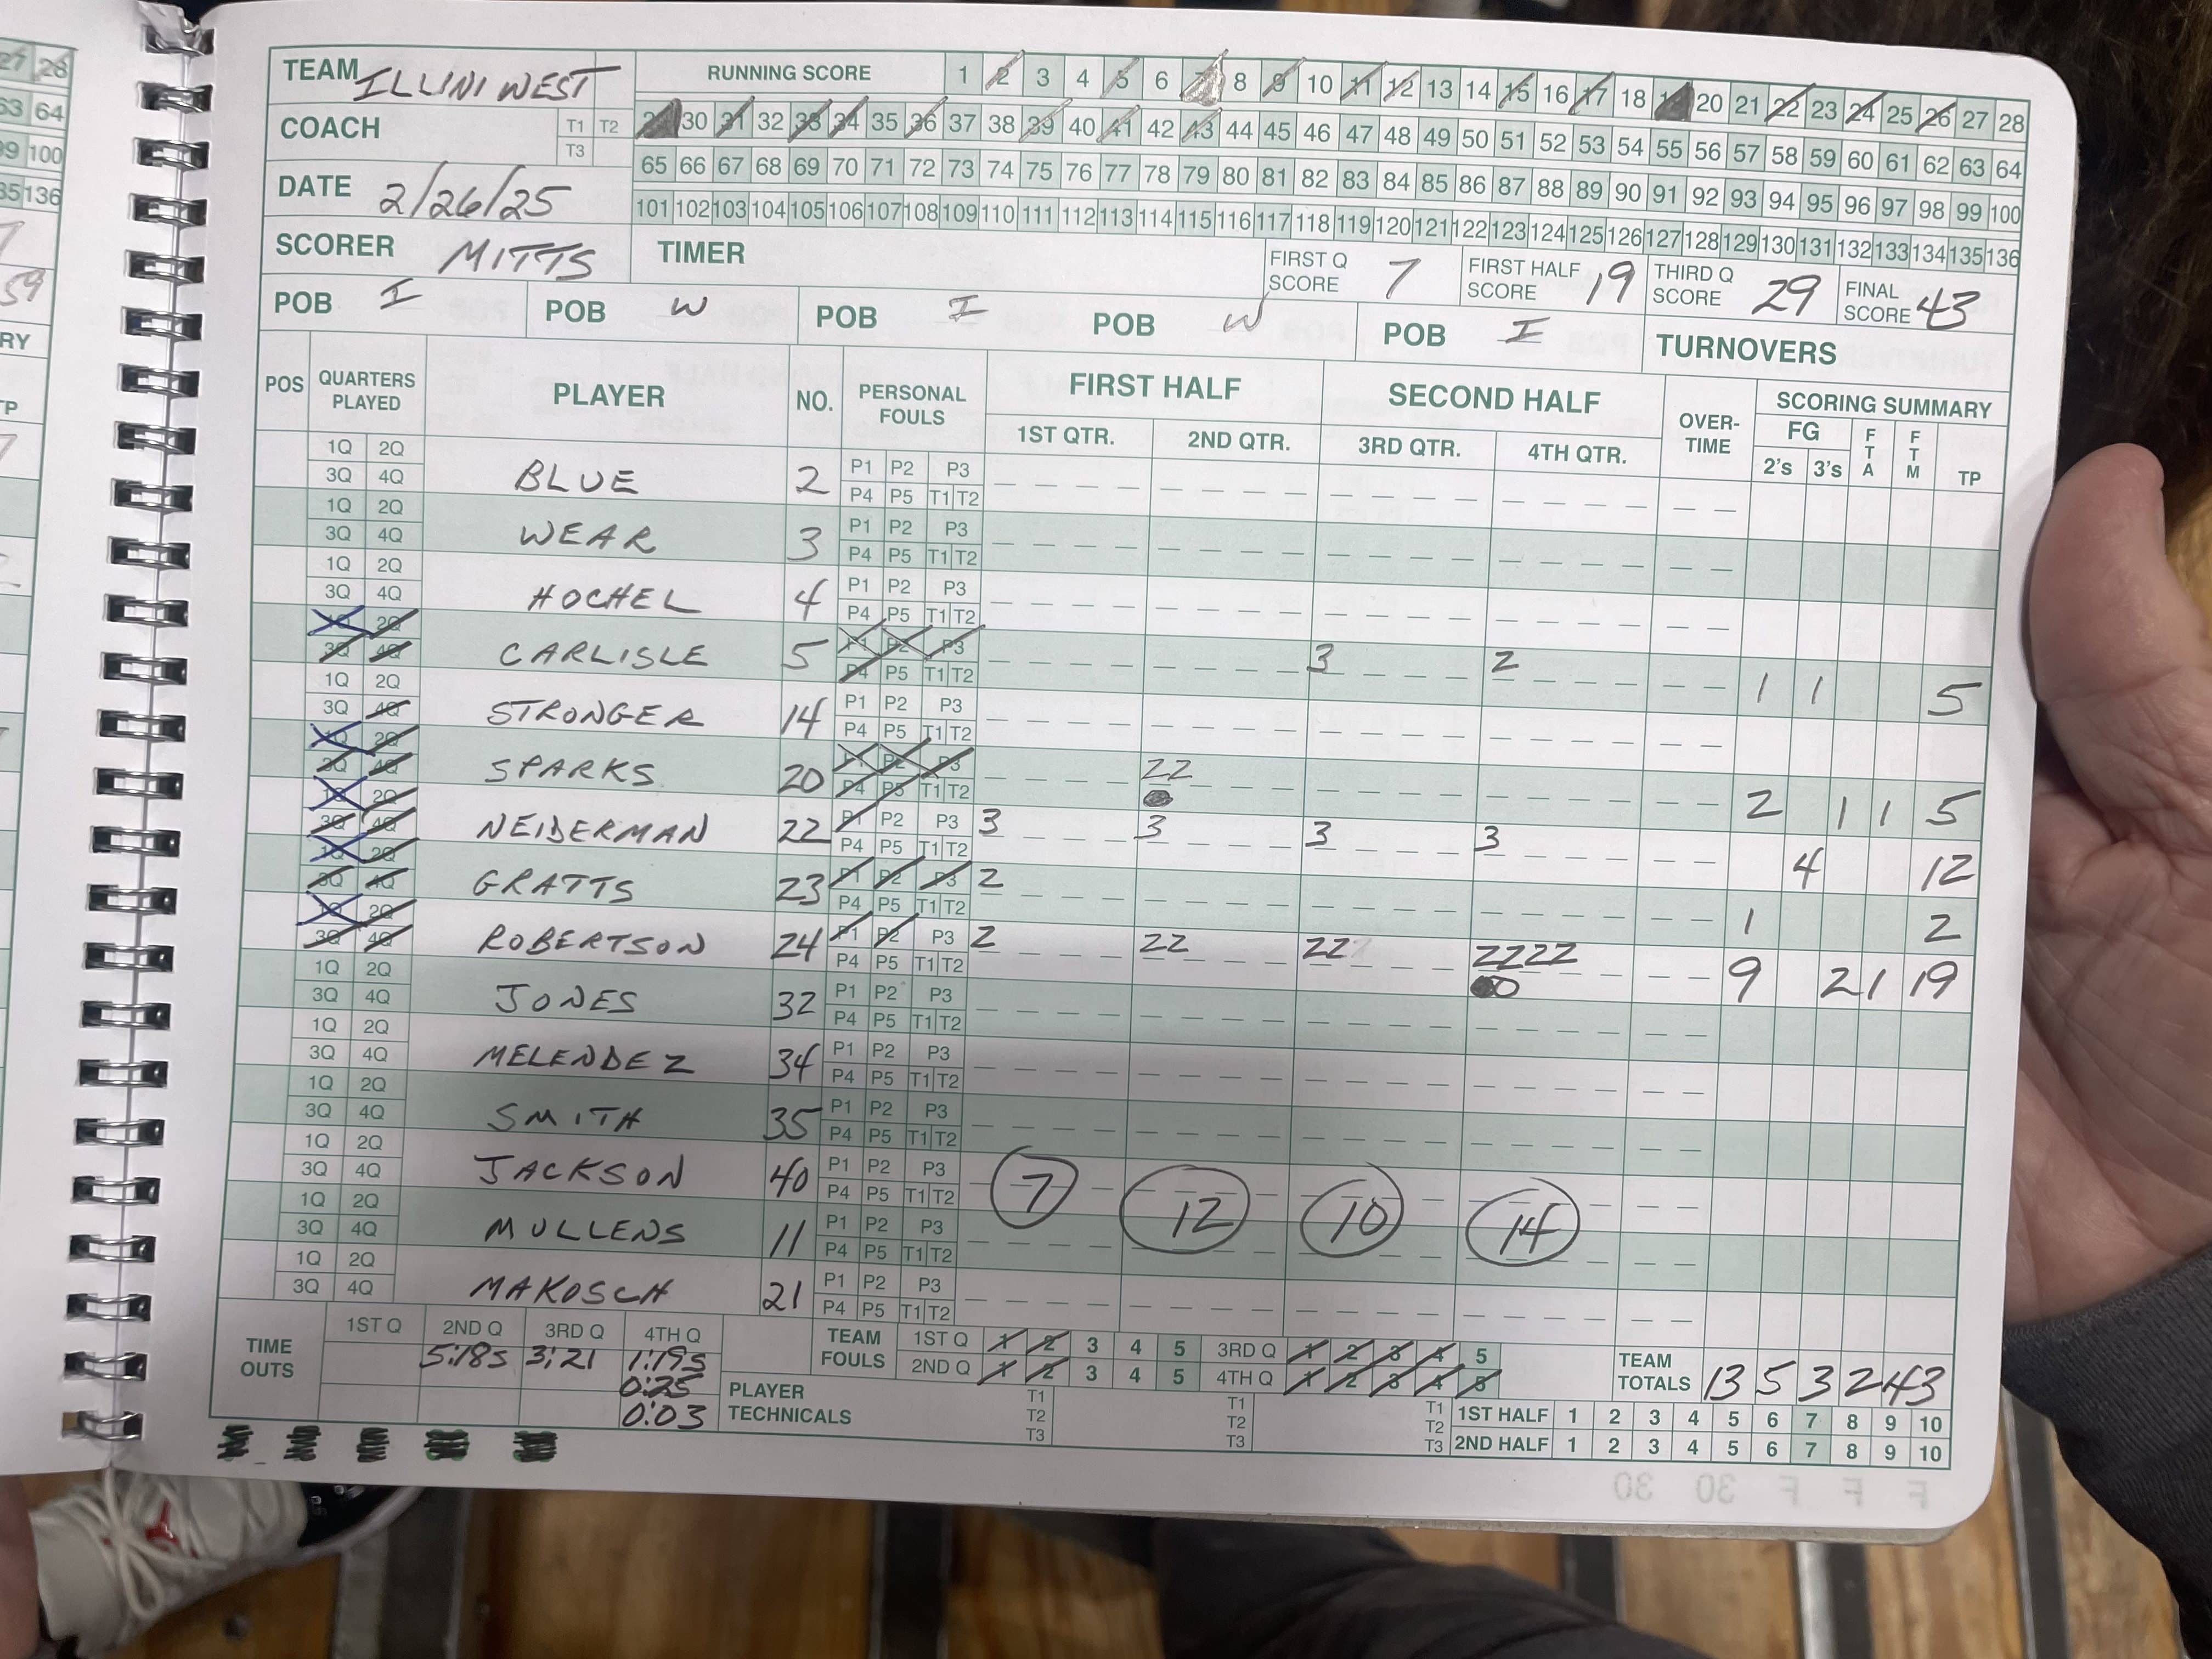 27 28
63 64
99 100
35 136
59
RY
TP
TEAM ILLINI WEST
RUNNING SCORE 1 2 3 4 5 6 7 8 9 10 11 12 13 14 15 16 17 18 19 20 21 22 23 24 25 26 27 28
COACH T1 T2 T3
29 30 31 32 33 34 35 36 37 38 39 40 41 42 43 44 45 46 47 48 49 50 51 52 53 54 55 56 57 58 59 60 61 62 63 64
65 66 67 68 69 70 71 72 73 74 75 76 77 78 79 80 81 82 83 84 85 86 87 88 89 90 91 92 93 94 95 96 97 98 99 100
DATE 2/26/25
101 102 103 104 105 106 107 108 109 110 111 112 113 114 115 116 117 118 119 120 121 122 123 124 125 126 127 128 129 130 131 132 133 134 135 136
SCORER MITTS TIMER FIRST Q SCORE 7 FIRST HALF SCORE 19 THIRD Q SCORE 29 FINAL SCORE 43
POB I POB W POB I POB W POB I TURNOVERS
POS QUARTERS PLAYED PLAYER NO. PERSONAL FOULS FIRST HALF SECOND HALF OVER-TIME SCORING SUMMARY
1ST QTR. 2ND QTR. 3RD QTR. 4TH QTR. FG 2's 3's FTA FTM TP
1Q 2Q P1 P2 P3
3Q 4Q BLUE 2 P4 P5 T1 T2
1Q 2Q P1 P2 P3
3Q 4Q WEAR 3 P4 P5 T1 T2
1Q 2Q P1 P2 P3
3Q 4Q HOCHEL 4 P4 P5 T1 T2
1Q 2Q P1 P2 P3
3Q 4Q CARLISLE 5 P4 P5 T1 T2 3 2 1 1 5
1Q 2Q P1 P2 P3
3Q 4Q STRONGER 14 P4 P5 T1 T2
1Q 2Q P1 P2 P3
3Q 4Q SPARKS 20 P4 P5 T1 T2 22 2 1 1 5
1Q 2Q P1 P2 P3
3Q 4Q NEIDERMAN 22 P4 P5 T1 T2 3 3 3 3 4 12
1Q 2Q P1 P2 P3
3Q 4Q GRATTS 23 P4 P5 T1 T2 2 1 2
1Q 2Q P1 P2 P3
3Q 4Q ROBERTSON 24 P4 P5 T1 T2 2 22 22 2222 9 2 1 19
1Q 2Q P1 P2 P3
3Q 4Q JONES 32 P4 P5 T1 T2
1Q 2Q P1 P2 P3
3Q 4Q MELENDEZ 34 P4 P5 T1 T2
1Q 2Q P1 P2 P3
3Q 4Q SMITH 35 P4 P5 T1 T2
1Q 2Q P1 P2 P3
3Q 4Q JACKSON 40 P4 P5 T1 T2
7 12 10 14
1Q 2Q P1 P2 P3
3Q 4Q MULLENS 11 P4 P5 T1 T2
1Q 2Q P1 P2 P3
3Q 4Q MAKOSCH 21 P4 P5 T1 T2
TIME OUTS 1ST Q 2ND Q 3RD Q 4TH Q TEAM FOULS 1ST Q 1 2 3 4 5 3RD Q 1 2 3 4 5
5:18s 3:21 1:19s 2ND Q 1 2 3 4 5 4TH Q 1 2 3 4 5 TEAM TOTALS 13 5 3 2 43
0:25
0:03 PLAYER TECHNICALS T1 T2 T3 T1 T2 T3 T1 T2 T3
1ST HALF 1 2 3 4 5 6 7 8 9 10
2ND HALF 1 2 3 4 5 6 7 8 9 10